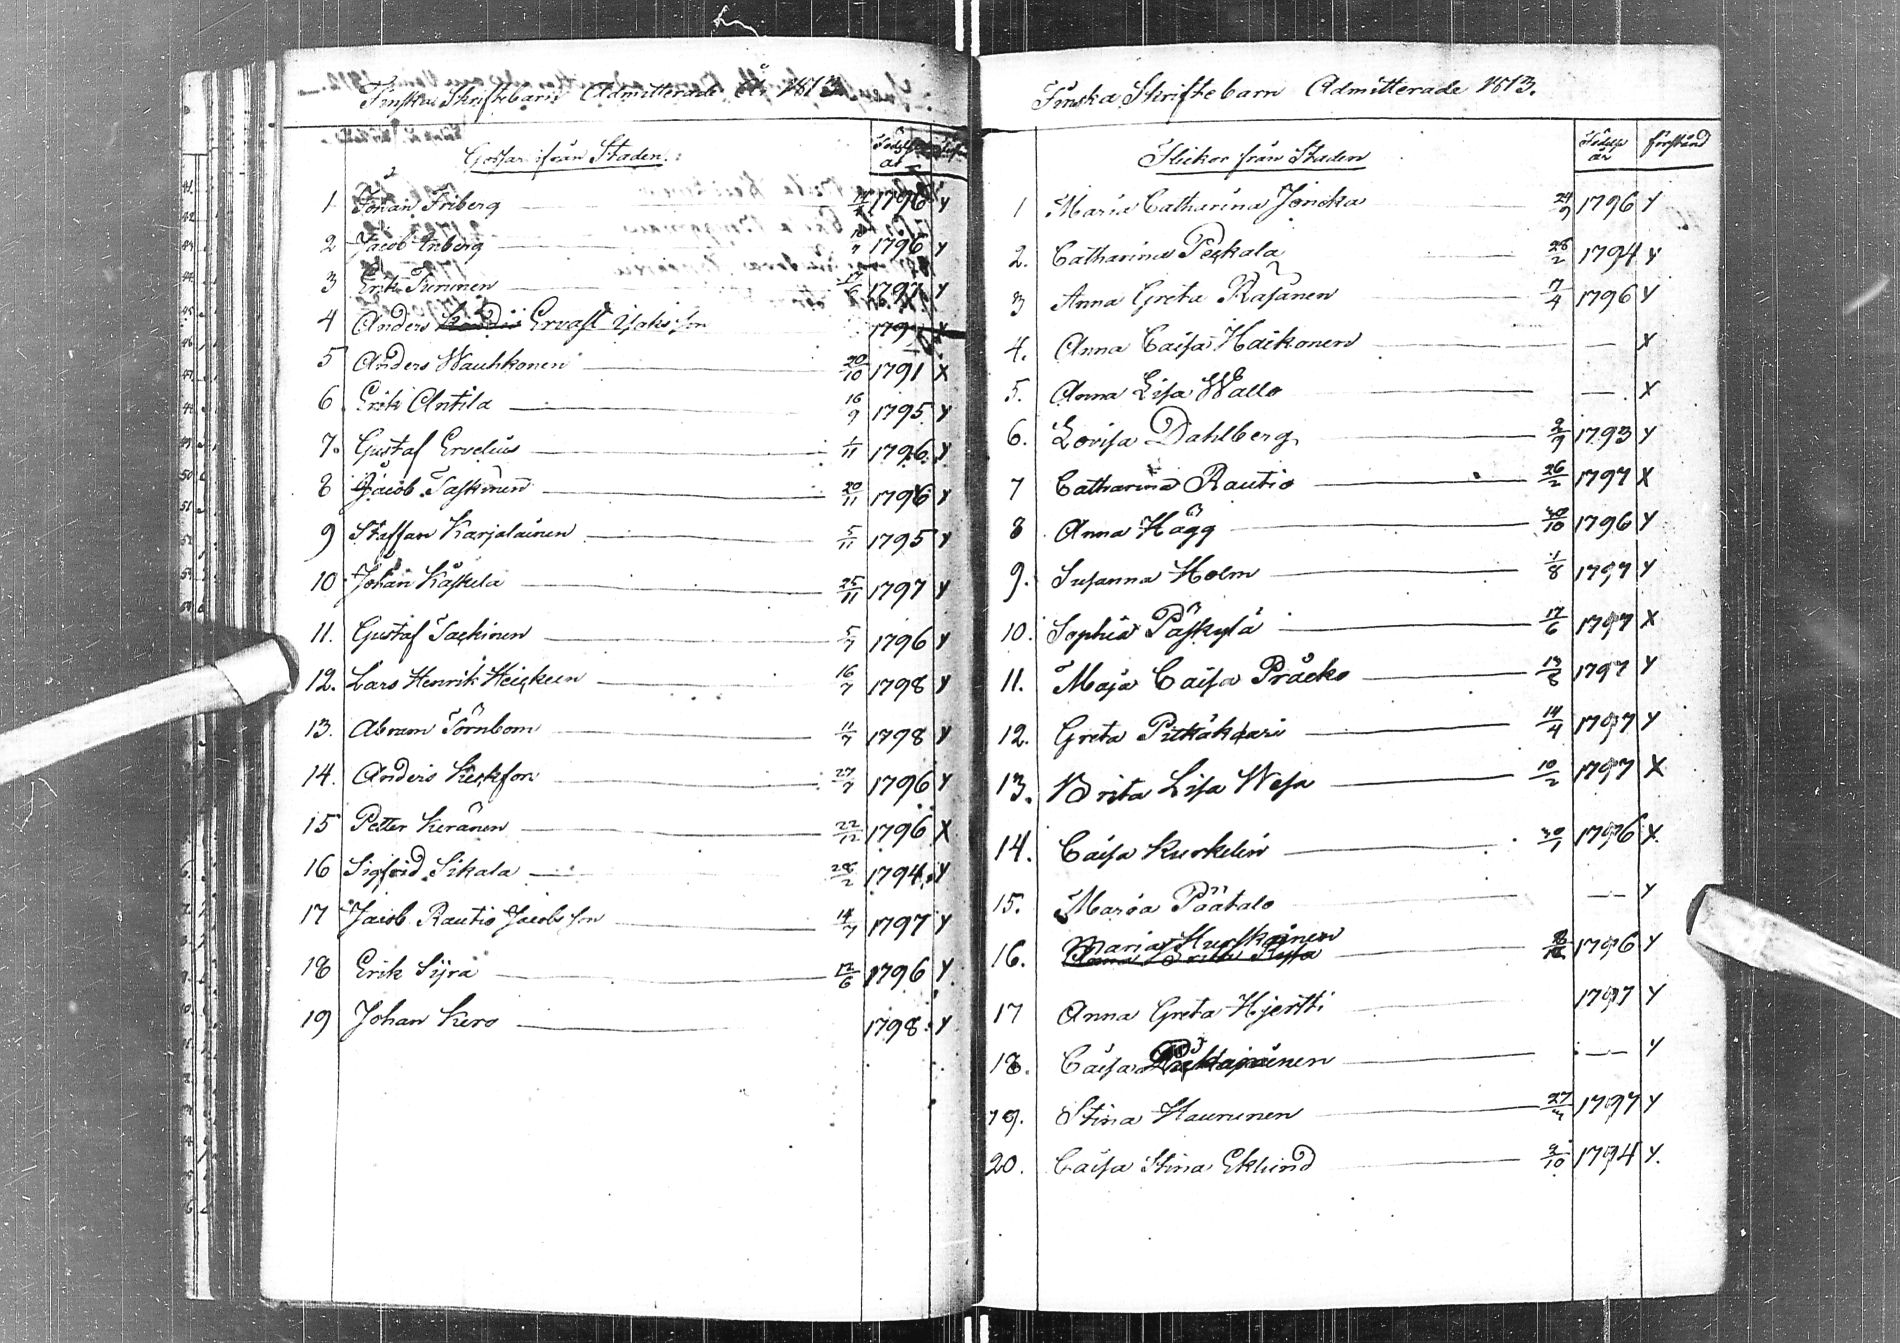 Finska Skriftebarn Admitterade År 1813.
Gossar ifrån Staden.
Födelse år
1 Johan Friberg 1796 y
2 Jacob Enberg 1796 y
3 Erik Turunen 17/6 1797 y
4 Anders Ervast 179 x
5 Anders Wauhkonen 20/10 1791 x
6 Erik Antila 16/9 1795 y
7. Gustaf Ervelius 1/11 1796 y
8 Jacob Taskinen 20/11 1796 y
9 Staffan Karjalainen 5/11 1795 y
10 Johan Kaskela 25/11 1797 y
11. Gustaf Taskinen 5/7 1796 y
12. Lars Henrik 16/7 1798 y
13. Abram Törnbom 11/7 1798 y
14. Anders 27/7 1796 y
15 Petter Keränen 22/12 1796 x
16 Sigfrid Sikala 28/2 1794 y
17 Jacob Rautio Jacobsson 14/7 1797 y
18 Erik Sÿrä 12/6 1796 y
19 Johan Kero 1798 y
Finska Skriftebarn Admitterade 1813.
Flickor från Staden
Födelse år
förstånd
1 Maria Catharina 24/9 1796 y
2. Catharina Peskala 28/2 1794 y
3 Anna Greta Räsänen 7/4 1796 y
4. Anna Caisa Haikonen — x
5. Anna Lisa Wallo — x
6. Lovisa Dahlberg 2/9 1793 y
7 Catharina Rautio 26/2 1797 x
8 Anna Hägg 30/10 1796 y
9. Susanna Holm 1/8 1797 y
10. Sophia Päskylä 17/6 1797 x
11. Maja Caisa Pråcko 13/8 1797 y
12. Greta Pitkäkaari 14/4 1797 y
13. Brita Lisa Wesa 10/2 1797 x
14. Caisa Kurkelin 1796 x
15. Maria Päätalo — y
16. Maria Hurskainen 1796 y
17 Anna Greta Hjertti 1797 y
18. Caisa — y
19. Stina Haurunen 1797 y
20. Caisa Stina Eklund 2/10 1794 y.